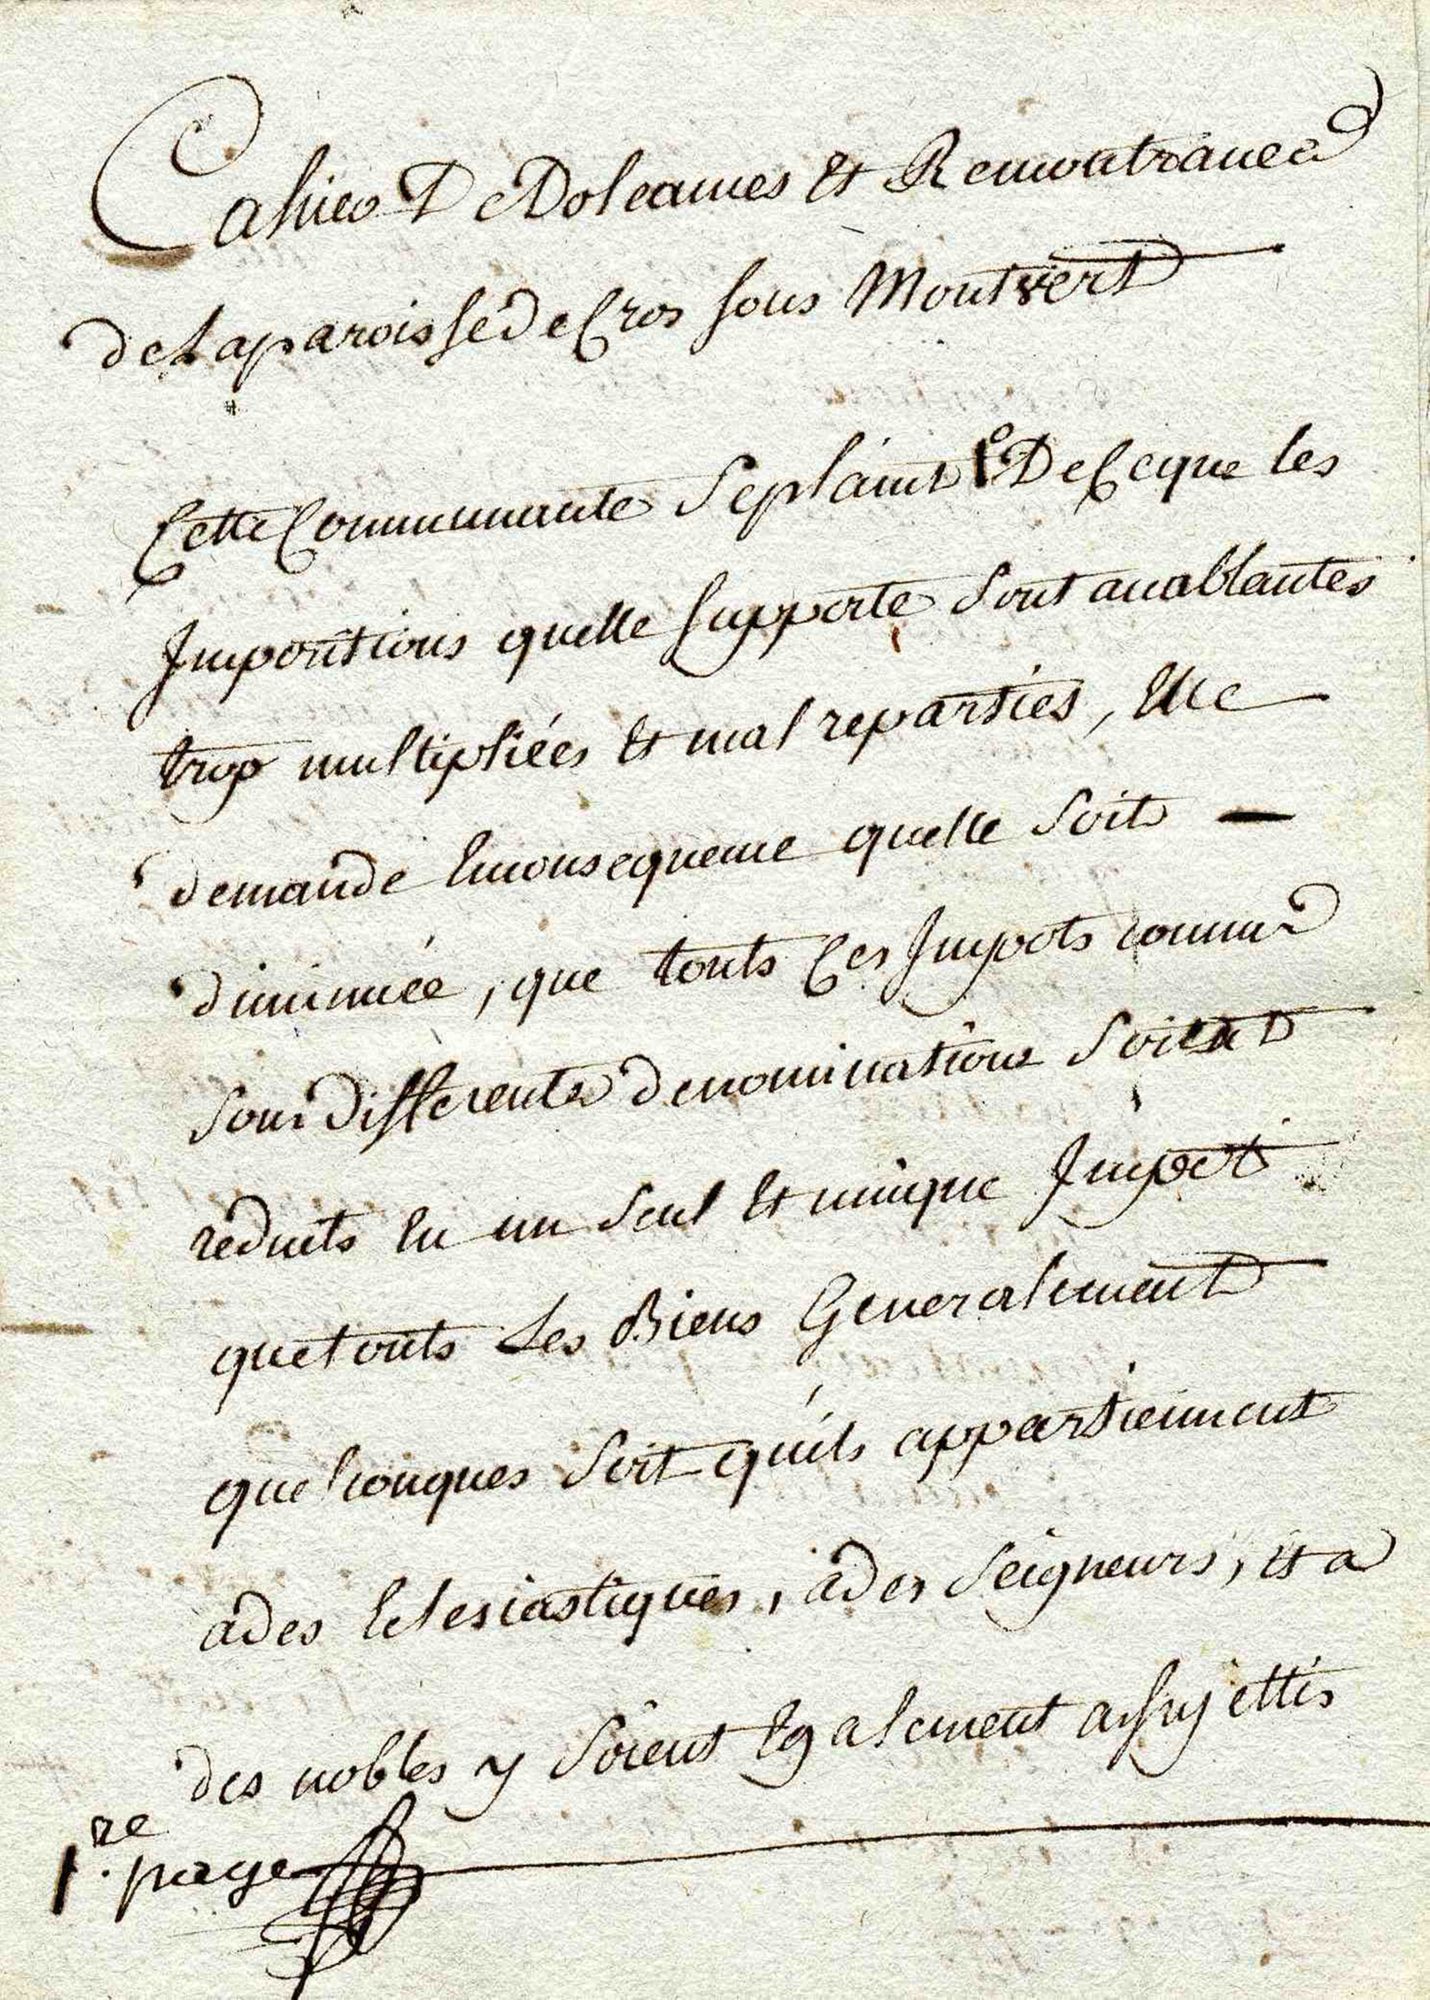 Cahier De Doleances Et Remontrances
de La paroisse de Cros sous Montvert
Cette Communauté se plaint 1° De Ce que les
Impositions quelle supporte sont accablantes
trop multipliées Et mal reparties, Elle
demande Enconsequence quelle soit
diminuée, que touts Ces Impots connus
sous differentes denominations soient
reduits En un seul Et unique Impot
que touts Les Biens Generalement
quelconques soit qu'ils appartiennent
a des Eclesiastiques, a des seigneurs, et a
des nobles y soient Egalement assujettis
1re. page